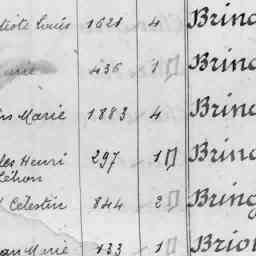 tiste Louis 1621 4 Brin
436 1 Brin
Marie 1883 4 Brin
les Henri 297 1 Brin
Léhon
Celestin 844 2 Bring
Marie 133 1 Brio